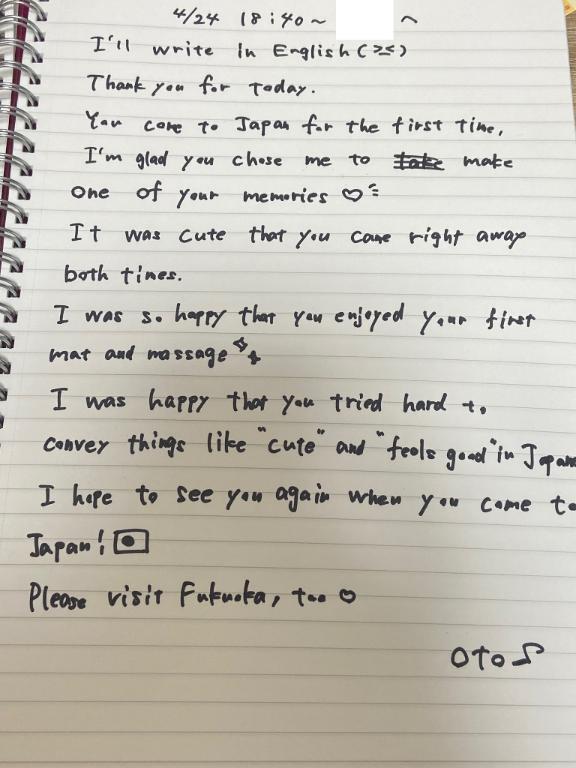 4/24 18:40~ へ
I'll write in English (≥≤)
Thank you for today.
You come to Japan for the first time,
I'm glad you chose me to make
one of your memories ♡
It was cute that you came right away
both times.
I was so happy that you enjoyed your first
mat and massage
I was happy that you tried hard to
convey things like "cute" and "feels good" in Japan
I hope to see you again when you come to
Japan!
Please visit Fukuoka, too ♡
OTO♪